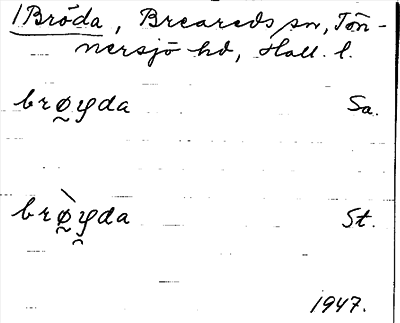 /Bröda, Breareds sn, Tön-
nersjö hd, Hall. l.
brø̰yda Sa.
brø̰̀y̯da St.
1947.